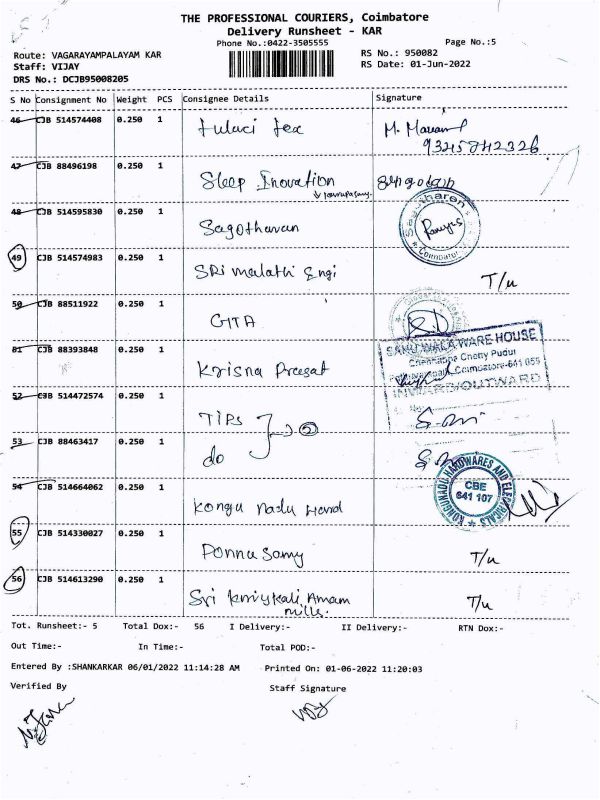 THE PROFESSIONAL COURIERS, Coimbatore
Delivery Runsheet - KAR
Phone No.:0422-3505555
Page No.:5
Route: VAGARAYAMPALAYAM KAR
RS No.: 950082
Staff: VIJAY
RS Date: 01-Jun-2022
DRS No.: DCJB95008205
S No Consignment No Weight PCS Consignee Details Signature
46 CJB 514574408 0.250 1 tulaci tex
9345842326
47 CJB 88496198 0.250 1 Sleep Inovation
48 CJB 514595830 0.250 1 Sagotharan
Sagotharen
Coimbatore
49 CJB 514574983 0.250 1 SRi malathi Engi T/u
50 CJB 88511922 0.250 1 GTA
51 CJB 88393848 0.250 1 Krisna Prasat
WARE HOUSE
Chetty Pudur
Coimbatore-641 055
INWARD/OUTWARD
52 CJB 514472574 0.250 1 TIPS
53 CJB 88463417 0.250 1 do
54 CJB 514664062 0.250 1 Kongu nadu Hard
KONGUNADU HARDWARES AND ELECTRICALS
CBE
641 107
55 CJB 514330027 0.250 1 Ponnu Samy T/u
56 CJB 514613290 0.250 1 Sri Amam T/u
mills.
Tot. Runsheet:- 5 Total Dox:- 56 I Delivery:- II Delivery:- RTN Dox:-
Out Time:- In Time:- Total POD:-
Entered By :SHANKARKAR 06/01/2022 11:14:28 AM Printed On: 01-06-2022 11:20:03
Verified By Staff Signature